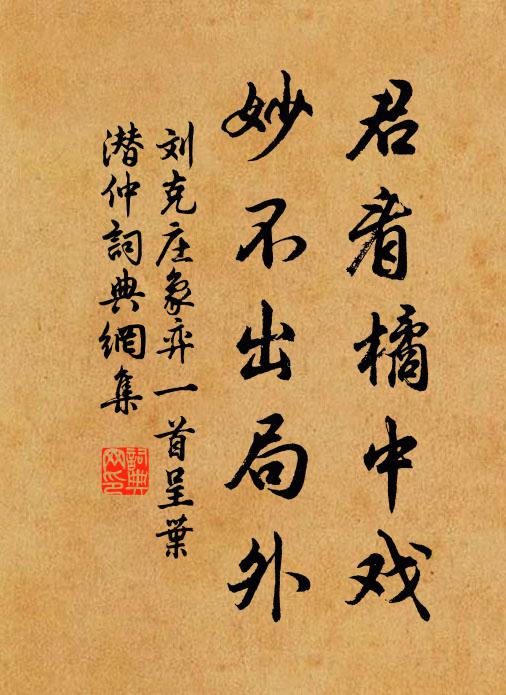 君看橘中戏
妙不出局外
刘克庄象弈一首呈葉
潜仲詞典網集
詞典網印